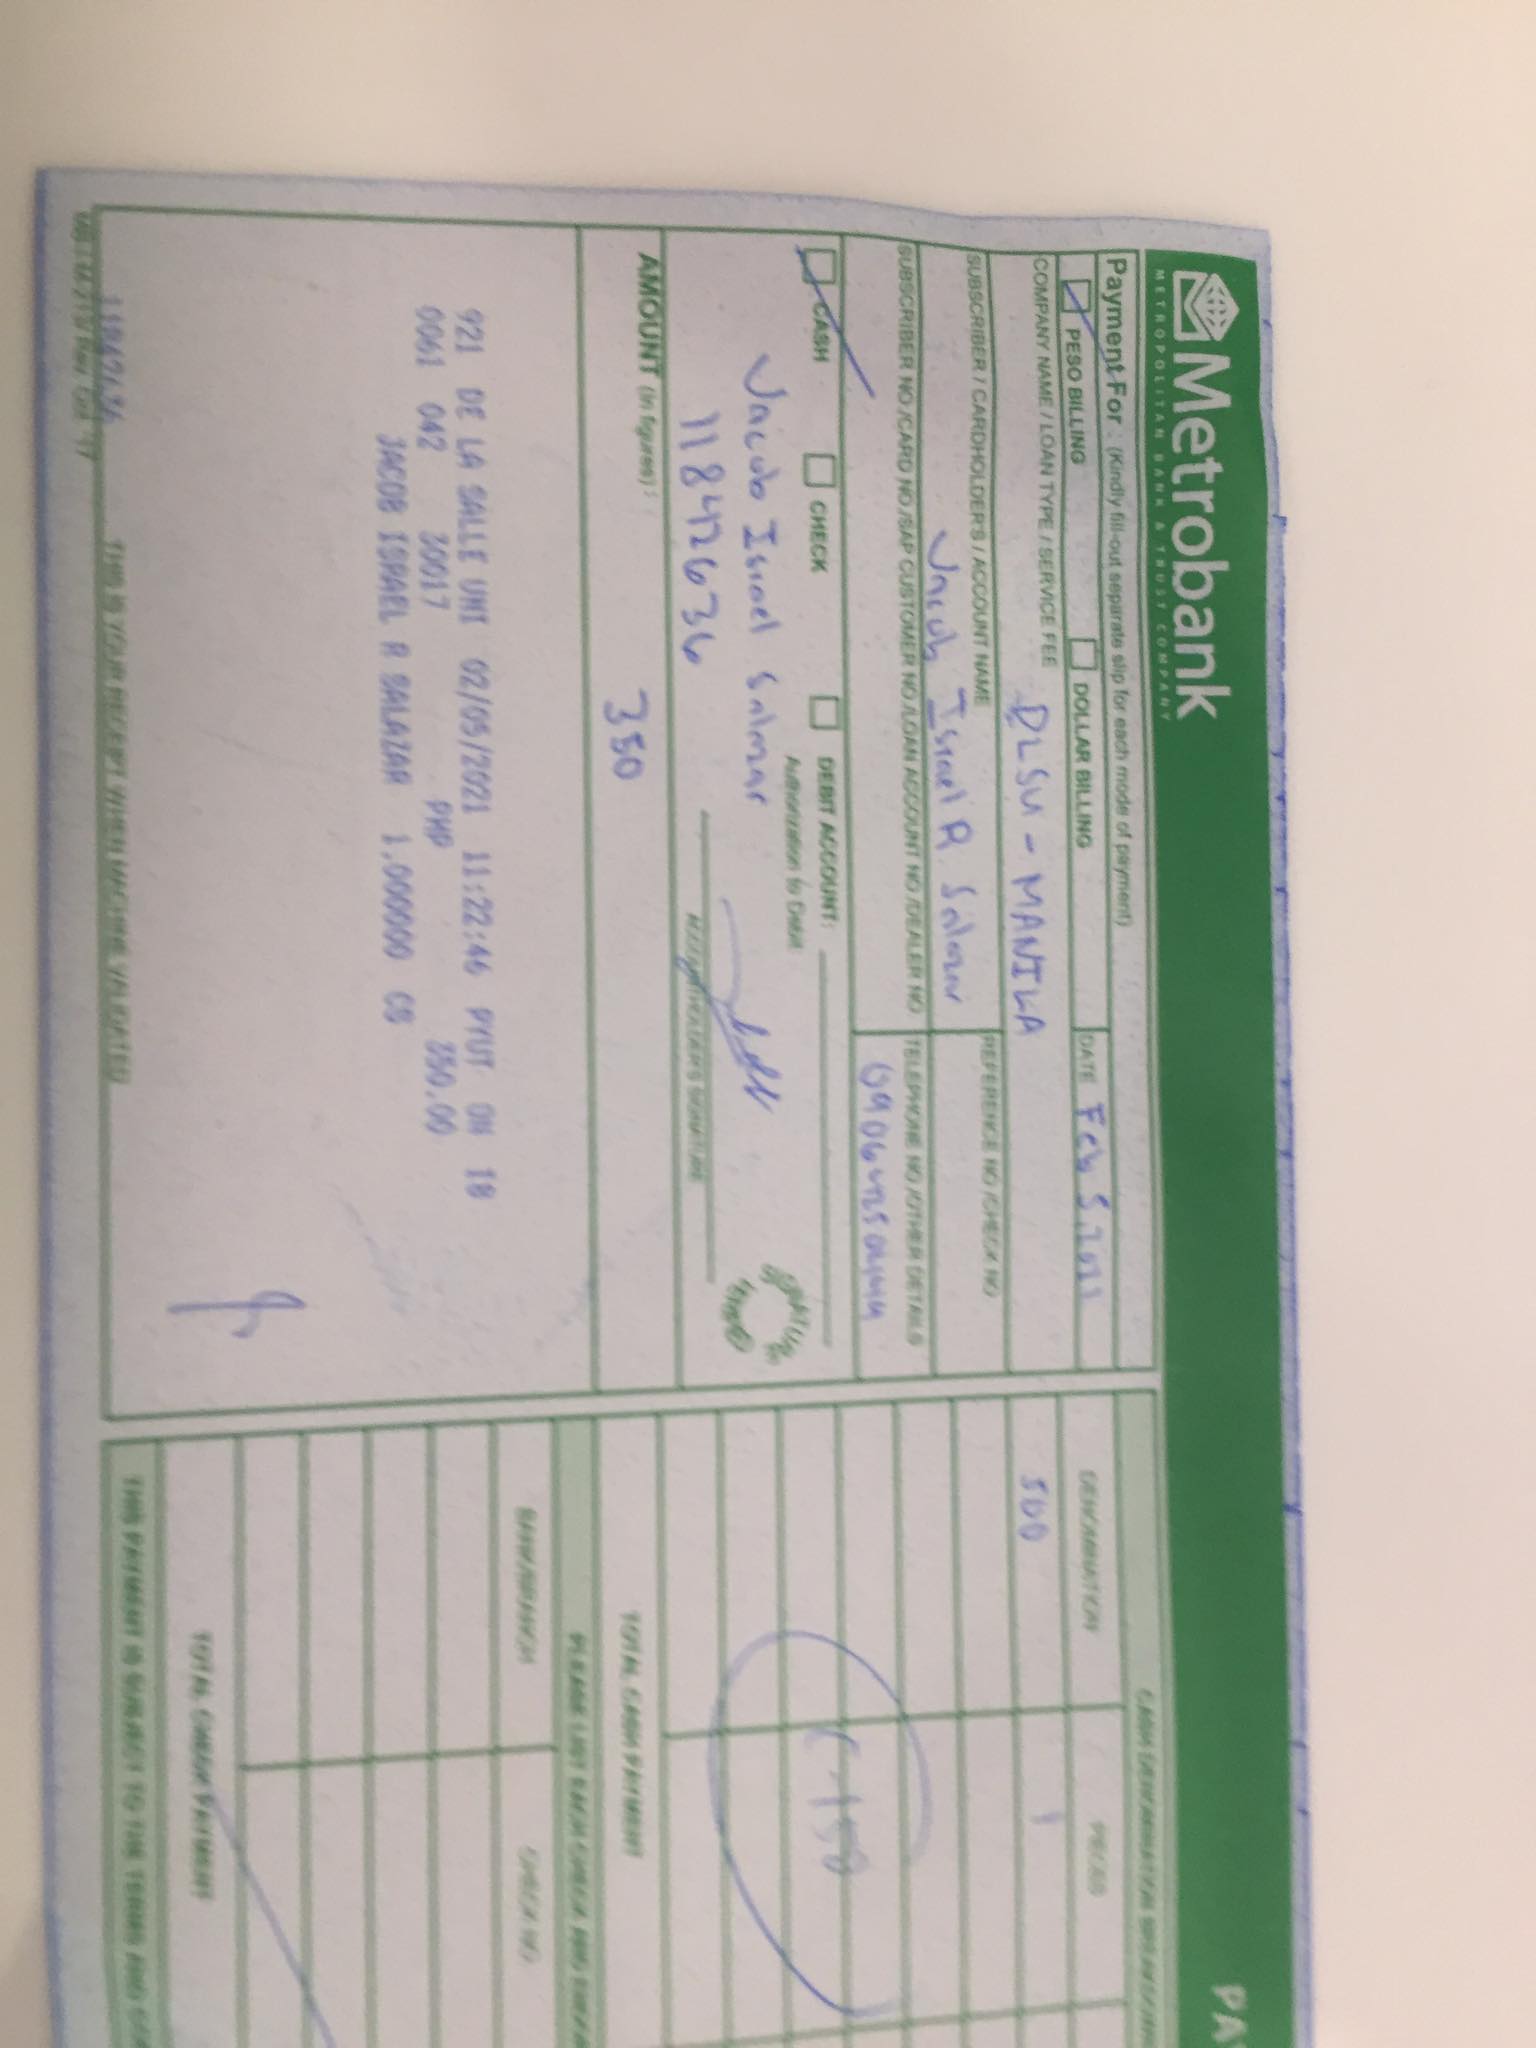 Metrobank
METROPOLITAN BANK & TRUST COMPANY
PA
Payment For : (Kindly fill-out separate slip for each mode of payment)
PESO BILLING DOLLAR BILLING DATE Feb 5, 2021
COMPANY NAME / LOAN TYPE / SERVICE FEE
DLSU - MANILA
SUBSCRIBER / CARDHOLDER'S / ACCOUNT NAME REFERENCE NO /CHECK NO
Jacob Israel R. Salazar
SUBSCRIBER NO /CARD NO /SAP CUSTOMER NO /LOAN ACCOUNT NO /DEALER NO TELEPHONE NO /OTHER DETAILS
CASH CHECK DEBIT ACCOUNT:
Authorization to Debit
Jacob Israel Salazar
11842636
SIGNATURE
AMOUNT (in figures) :
350
921 DE LA SALLE UNI 02/05/2021 11:22:46 PYUT ON 18
0061 042 20017 PHP 350.00
JACOB ISRAEL R SALAZAR 1.000000 CS
THIS IS YOUR RECEIPT WHEN MACHINE VALIDATED
CASH DENOMINATION
DENOMINATION PIECES
500 1
TOTAL CASH PAYMENT
PLEASE LIST EACH CHECK AND
BANK/BRANCH CHECK NO
TOTAL CHECK PAYMENT
THIS PAYMENT IS SUBJECT TO THE TERMS AND